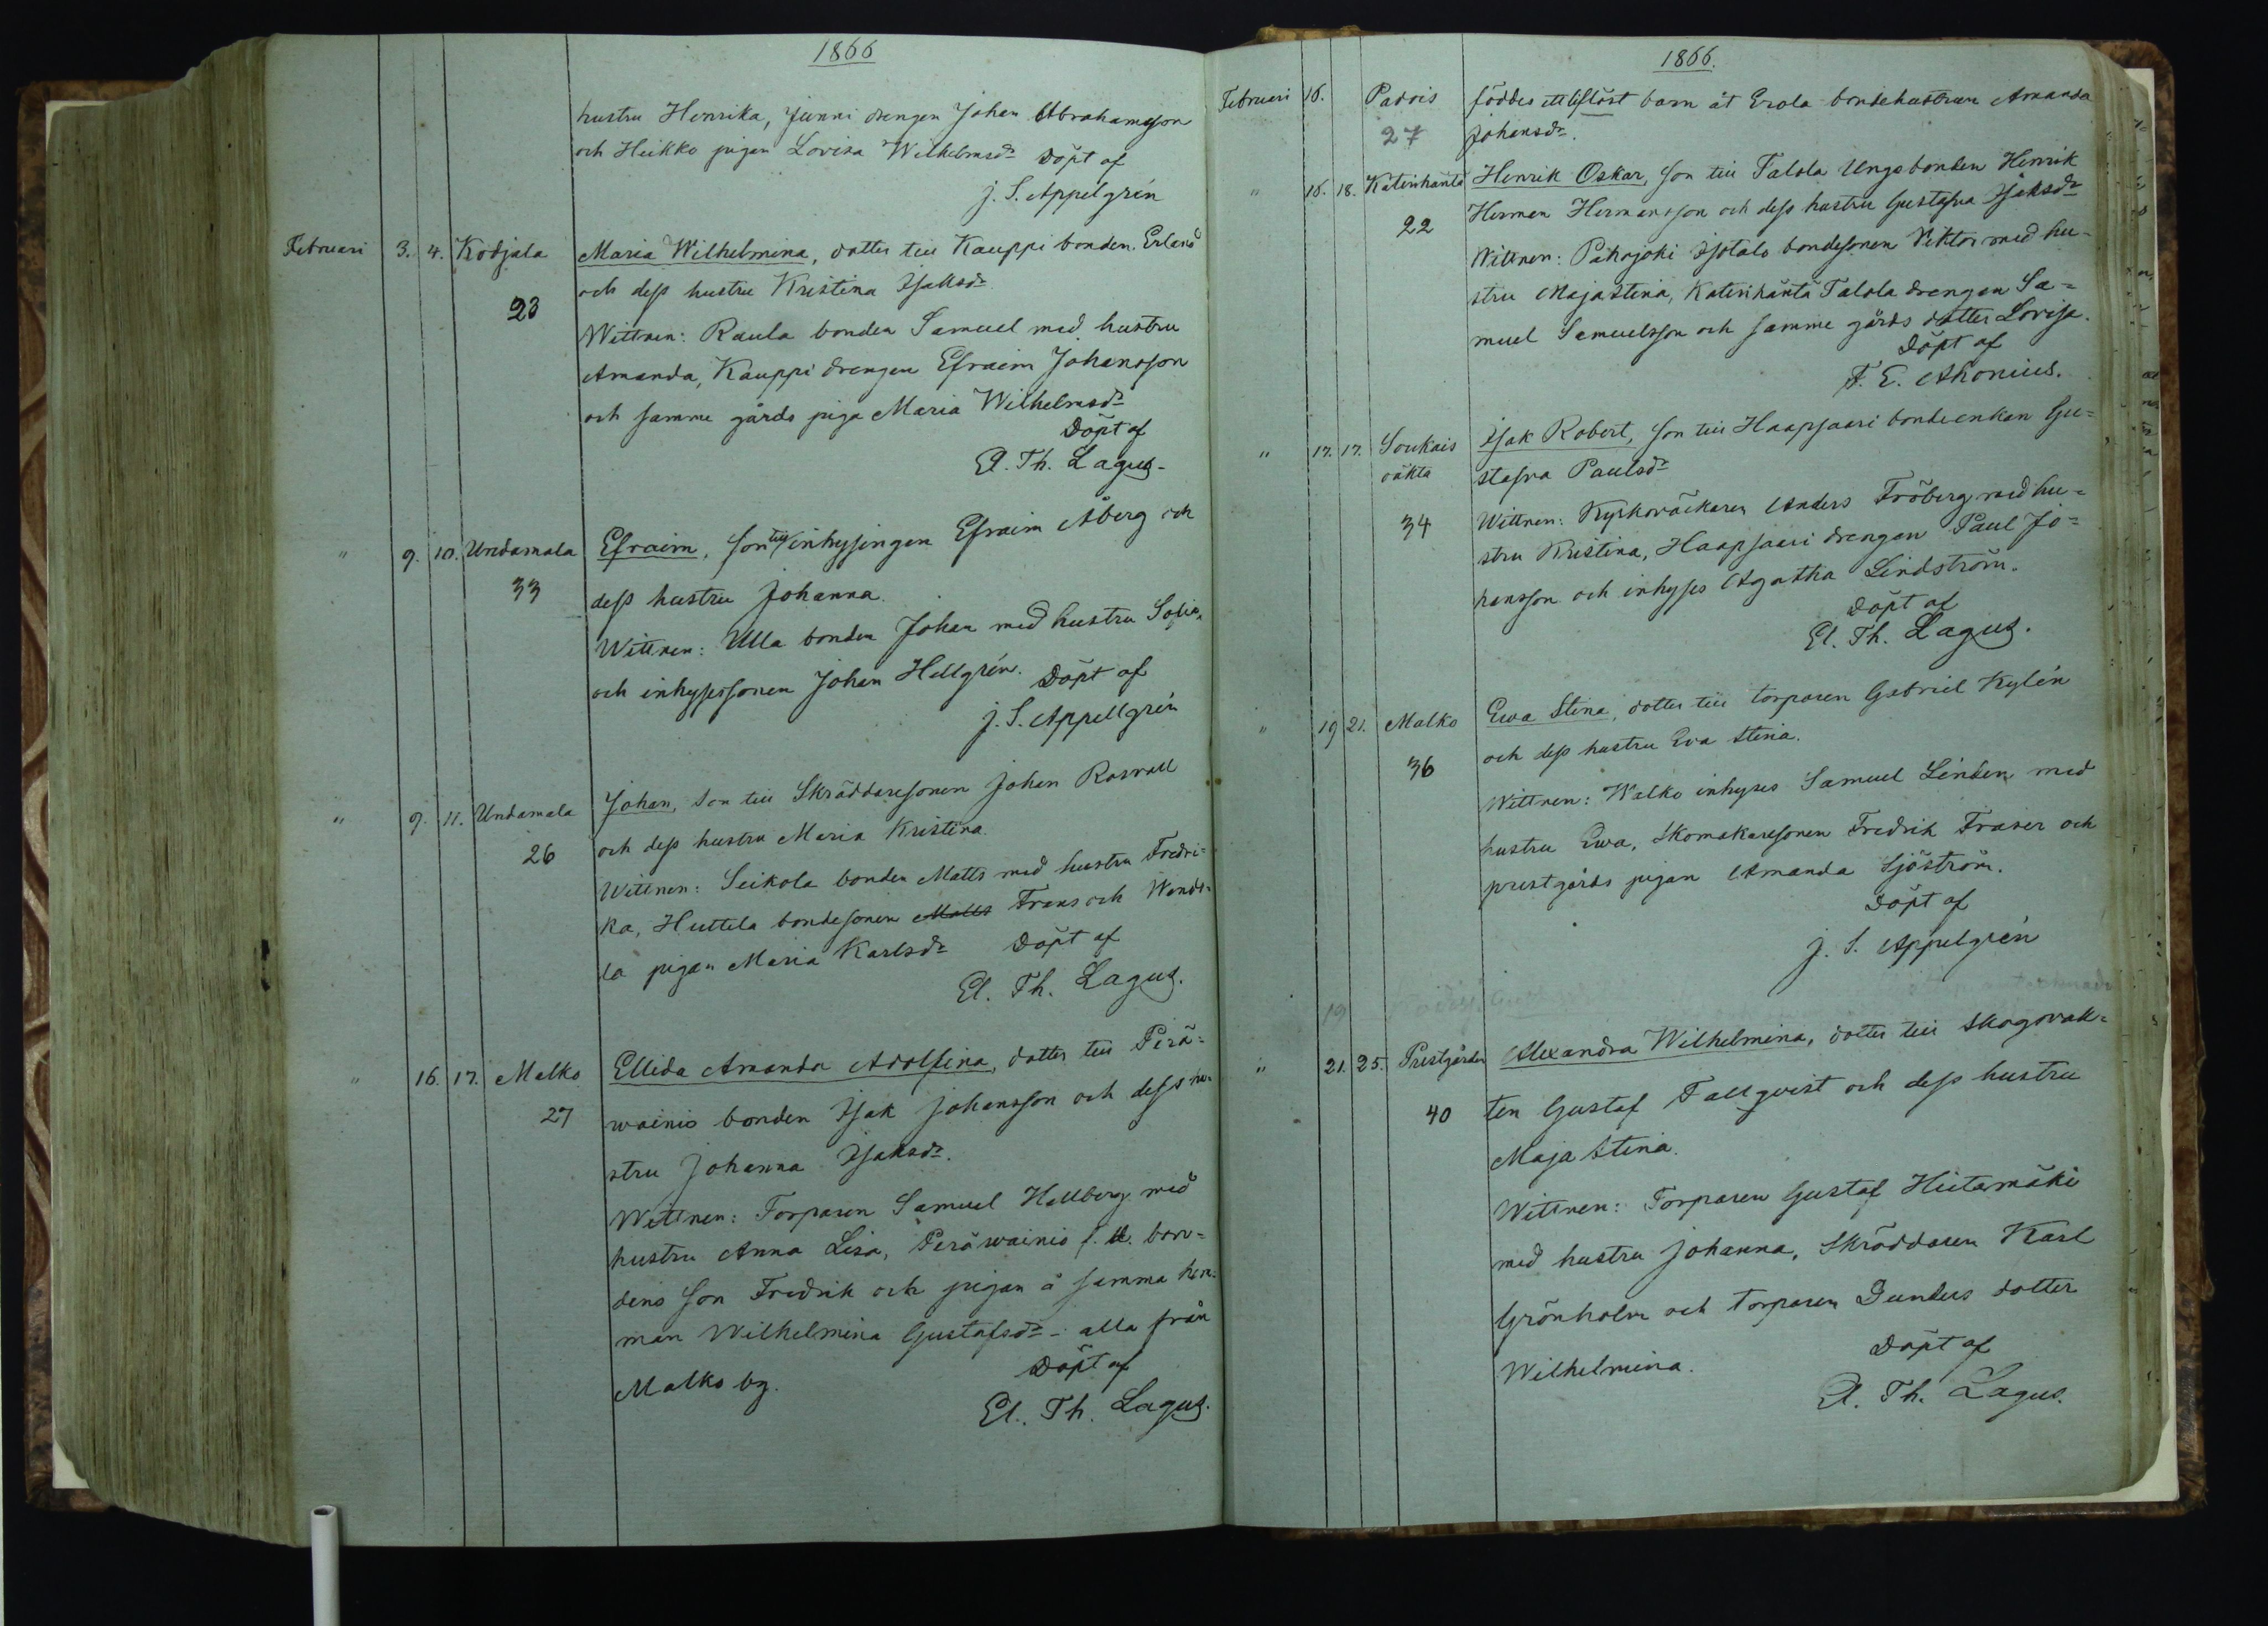 1866
hustru Henrika, Junni drengen Johan Abrahamsson
och Heikko pigan Lovisa Wilhelmsdr Döpt af
J. S. Appelgrén
Februari 3. 4. Kodjala Maria Wilhelmina, dotter till Kauppi bonden Erland
och dess hustru Kristina Isaksdr
23
Wittnen: Raula bonden Samuel med hustru
Amanda, Kauppi drengen Efraim Johansson
och samme gårds piga Maria Wilhelmsdr
Döpt af
El. Th. Lagus.
" 9. 10. Untamala Efraim, son till inhysingen Efraim Åberg och
33 dess hustru Johanna.
Wittnen: Ulla bonden Johan med hustru Sofia,
och inhysessonen Johan Hellgrén. Döpt af
J. S. Appellgrén
" 9. 11. Untamala Johan, son till Skräddaresonen Johan Rosvall
26 och dess hustru Maria Kristina.
Wittnen: Seikola bonden Matts med hustru Fredri=
ka, Huttela bondesonen Matts Frans och Wendo=
la pigan Maria Karlsdr Döpt af
El. Th. Lagus.
" 16. 17. Malko Ellida Amanda Adolfina, dotter till Perä=
27 wainio bonden Isak Johansson och dess hu=
stru Johanna Isaksdr.
Wittnen: Torparen Samuel Hellberg med
hustru Anna Lisa, Peräwainio f. d. bon=
dens son Fredrik och pigan å samma hem=
man Wilhelmina Gustafsdr - alla från
Malko by. Döpt af
El. Th. Lagus.
1866.
Februari 16. Padois föddes ett liflöst barn åt Erola bondehustrun Amanda
27 Johansdr.
" 16. 18. Katinhäntä Henrik Oskar, son till Talola Ungsbonden Henrik
22 Herman Hermansson och dess hustru Gustafva Isaksdr
Wittnen: Pahojoki Isotalo bondesonen Viktor med hu=
stru Maja Stina, Katinhäntä Talola drengen Sa=
muel Samuelsson och samme gårds dotter Lovisa.
Döpt af
F. E. Ahonius.
" 17. 17. Soukais Isak Robert, son till Haapsaari bondeenkan Gu=
väkta stafva Paulsdr
34 Wittnen: Kyrkoväckaren Anders Fröberg med hu=
stru Kristina, Haapsaari drengen Paul Jo=
hansson och inhyses Agatha Lindström.
Döpt af
El. Th. Lagus.
" 19 21. Malko Ewa Stina, dotter till torparen Gabriel Kylén
36 och dess hustru Eva Stina.
Wittnen: Walko inhyses Samuel Lindén med
hustru Ewa, Skomakaresonen Fredrik Fraser och
prestgårds pigan Amanda Sjöström.
Döpt af
J. S. Appelgrén
19
" 21. 25. Prestgården Alexandra Wilhelmina, dotter till Skogovak=
40 ten Gustaf Fallqvist och dess hustru
Maja Stina.
Wittnen: Torparen Gustaf Hietamäki
med hustru Johanna, Skräddaren Karl
Grönholm och torparen Gunders dotter
Wilhelmina. Döpt af
El. Th. Lagus.